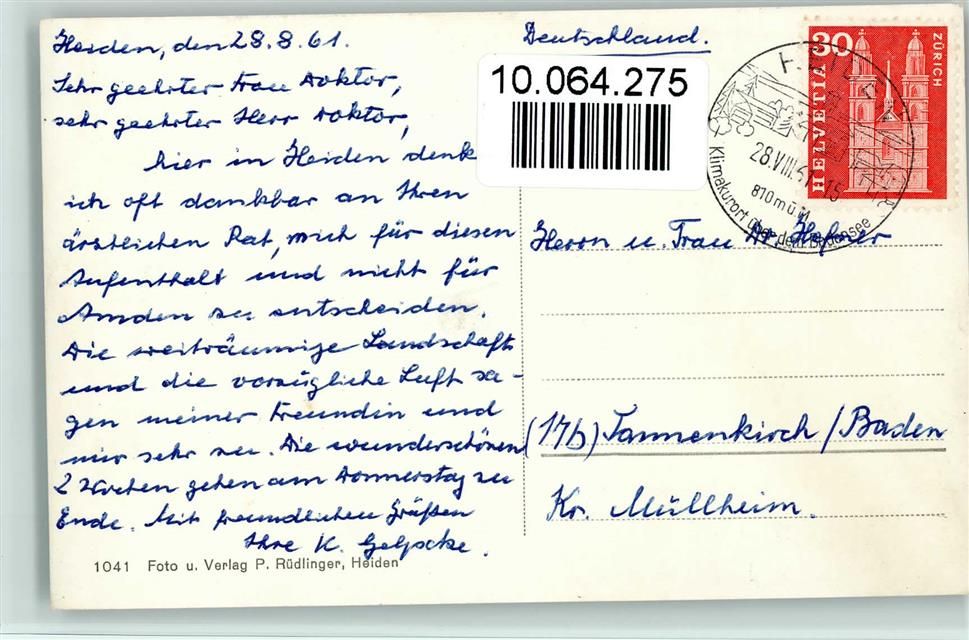 Heiden, den 28.8.61.
Sehr geehrter Frau Doktor,
sehr geehrter Herr Doktor,
hier in Heiden denk
ich oft dankbar an Ihren
ärztlichen Rat, mich für diesen
Aufenthalt und nicht für
Amden zu entscheiden.
Die weiträumige Landschaft
und die vorzügliche Luft sa-
gen meiner Freundin und
mir sehr zu. Die wunderschönen
2 Wochen gehen am Donnerstag zu
Ende. Mit freundlichen Grüßen
Ihre K. Gelpcke.
1041 Foto u. Verlag P. Rüdlinger, Heiden
Deutschland.
10.064.275
30
HELVETIA
ZÜRICH
HEIDEN
28.VIII.61-15
810 m ü. M.
Klimakurort über dem Bodensee
Herrn u. Frau Dr. Hafner
(17b) Tannenkirch/Baden
Kr. Müllheim.